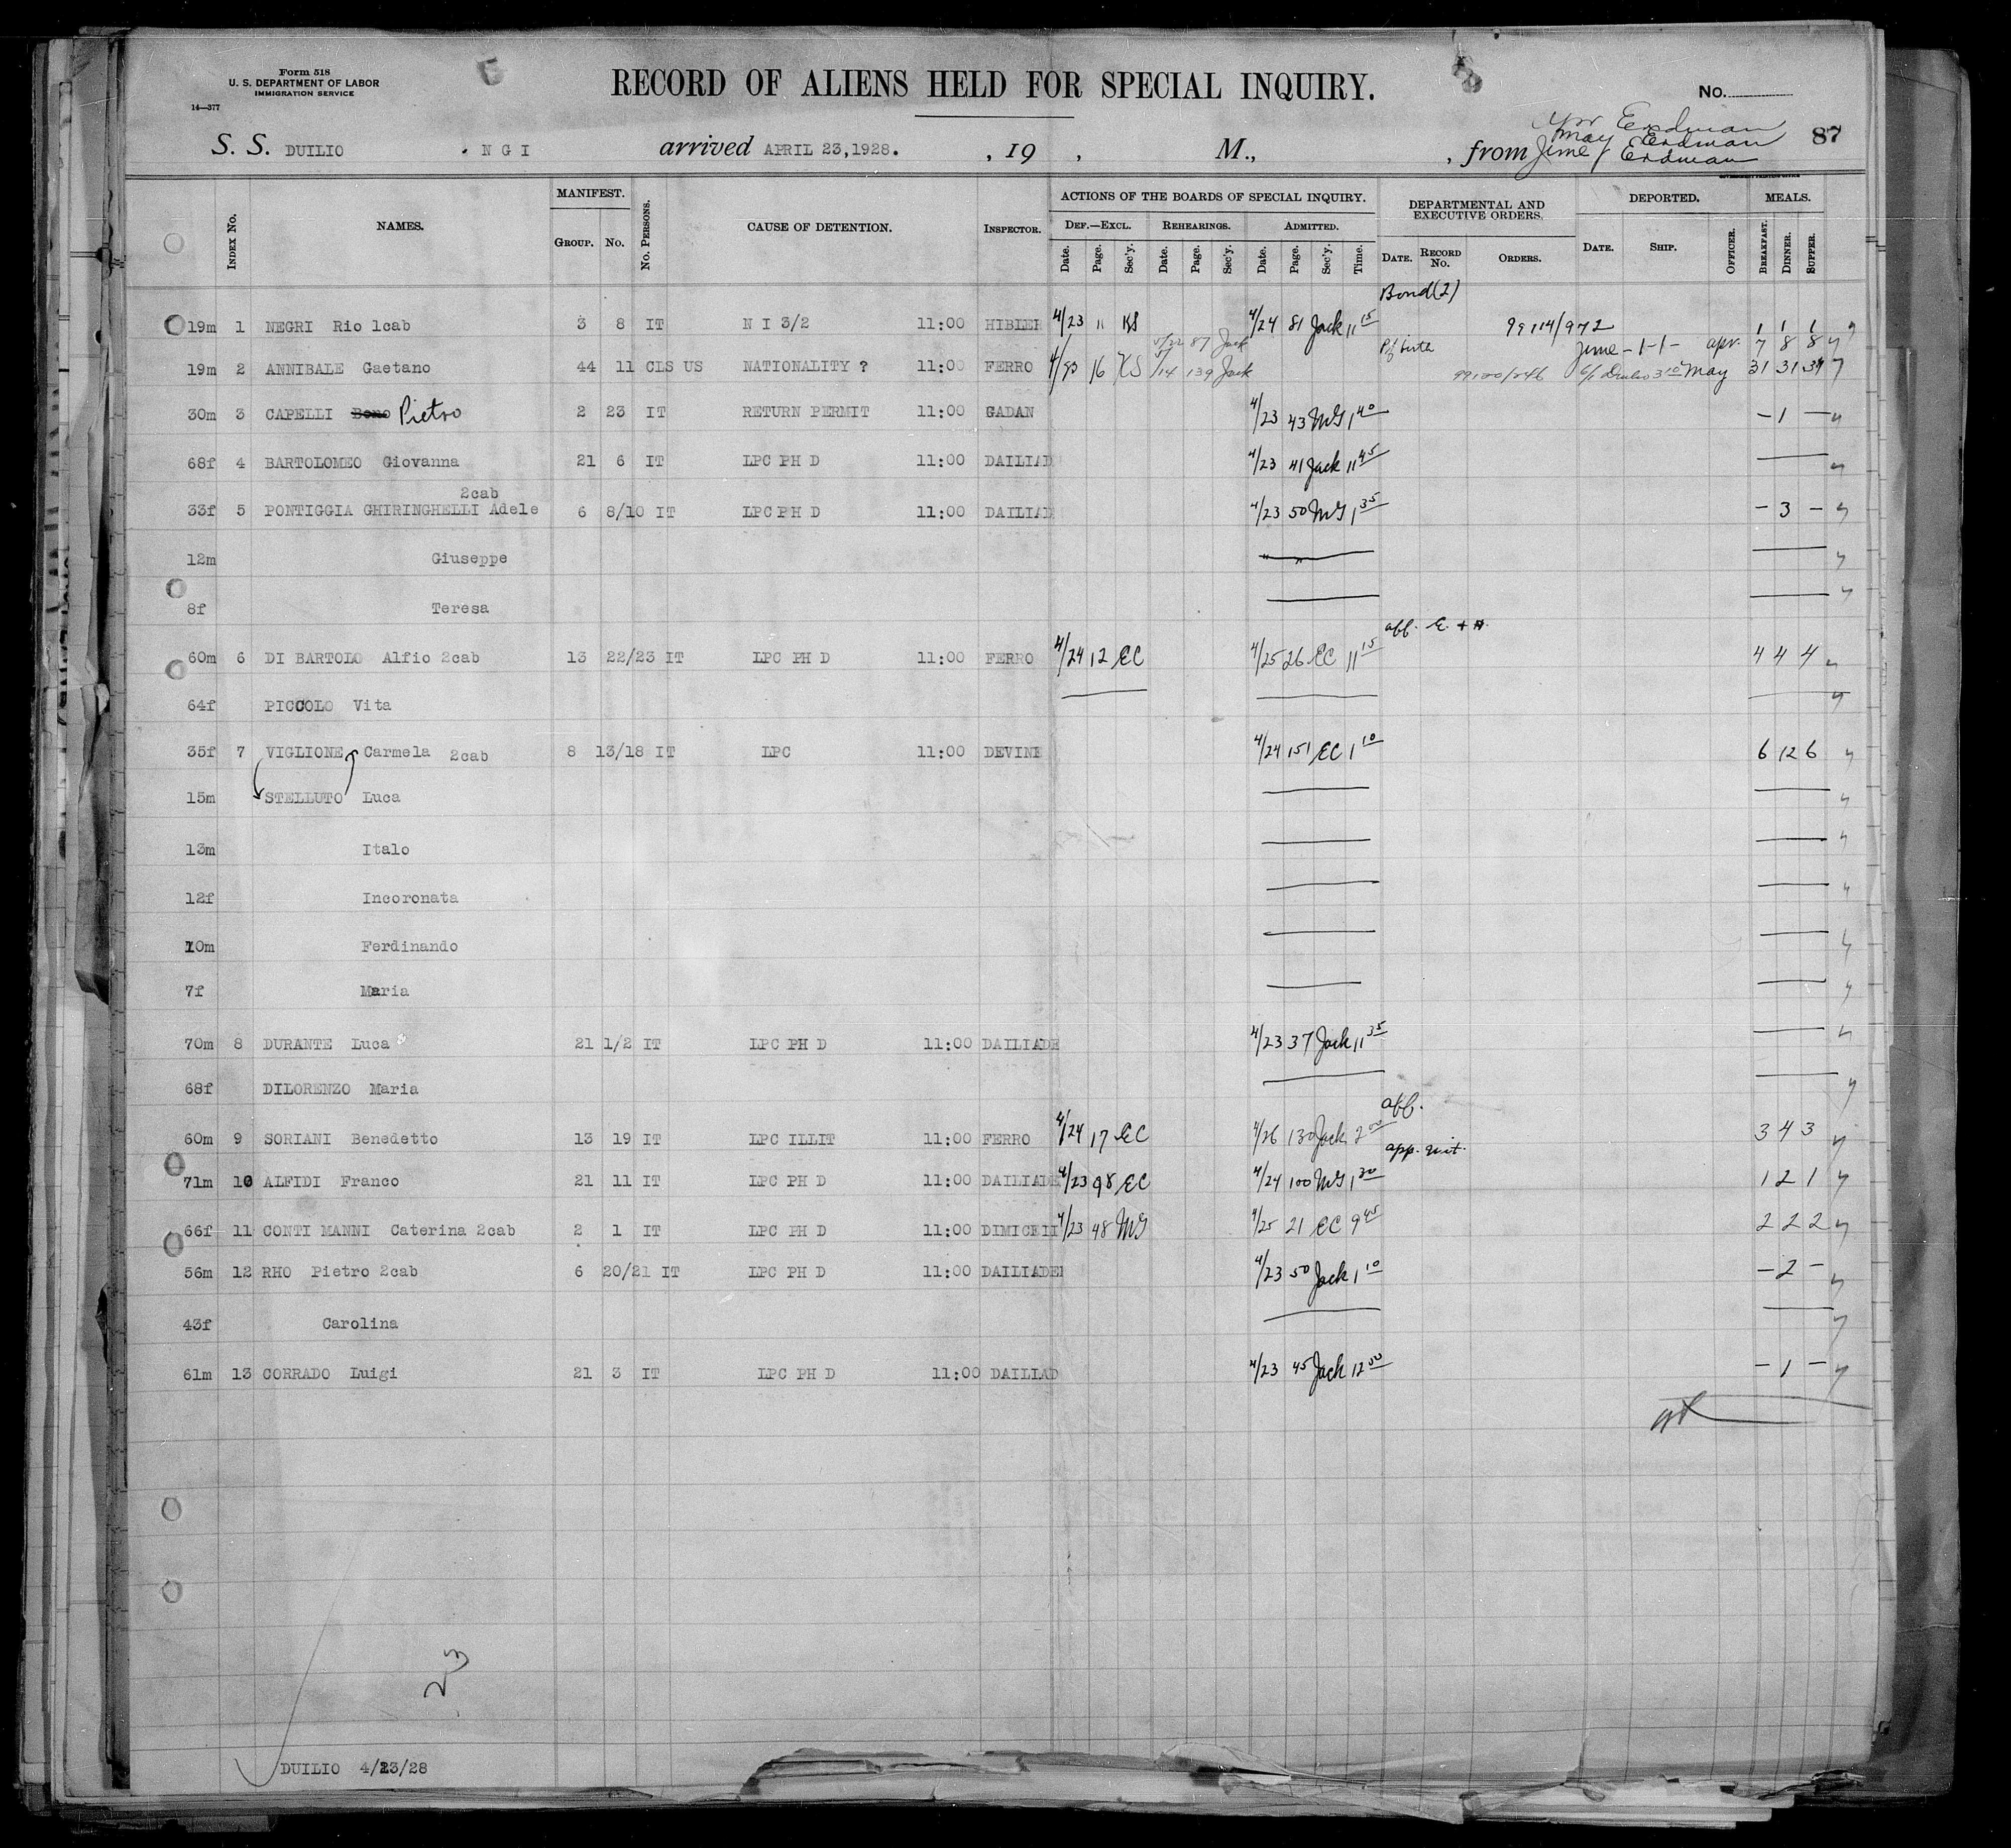 Form 518
U. S. DEPARTMENT OF LABOR
IMMIGRATION SERVICE
14—377
RECORD OF ALIENS HELD FOR SPECIAL INQUIRY.
No.
87
Erdman
May Erdman
June Erdman
S. S. DUILIO NGI arrived APRIL 23,1928. , 19 , M., , from
INDEX No. NAMES. MANIFEST. GROUP. No. No. PERSONS. CAUSE OF DETENTION. INSPECTOR. ACTIONS OF THE BOARDS OF SPECIAL INQUIRY. DEF.—EXCL. Date. Page. Sec'y. REHEARINGS. Date. Page. Sec'y. ADMITTED. Date. Page. Sec'y. Time. DEPARTMENTAL AND EXECUTIVE ORDERS. DATE. RECORD No. ORDERS. DEPORTED. DATE. SHIP. OFFICER. MEALS. BREAKFAST. DINNER. SUPPER.
Bond(2)
19m 1 NEGRI Rio 1cab 3 8 IT N I 3/2 11:00 HIBLER 4/23 11 KS 4/24 81 Jack 11 15 99114/972 1 1 1
5/22 87 Jack June - 1 - 1 - apr. 7 8 8
19m 2 ANNIBALE Gaetano 44 11 CLS US NATIONALITY ? 11:00 FERRO 4/23 16 KS 5/14 139 Jack 6/1 Duilio 3 10 May 31 31 31
30m 3 CAPELLI Bono Pietro 2 23 IT RETURN PERMIT 11:00 GADAN 4/23 43 MG 1 40 — 1 —
68f 4 BARTOLOMEO Giovanna 21 6 IT LPC PH D 11:00 DAILIAD 4/23 41 Jack 11 45
2cab
33f 5 PONTIGGIA GHIRINGHELLI Adele 6 8/10 IT LPC PH D 11:00 DAILIAD 4/23 50 MG 1 35 — 3 —
12m Giuseppe
8f Teresa
aff. E. + H.
60m 6 DI BARTOLO Alfio 2cab 13 22/23 IT LPC PH D 11:00 FERRO 4/24 12 EC 4/25 26 EC 11 15 4 4 4
64f PICCOLO Vita
35f 7 VIGLIONE Carmela 2cab 8 13/18 IT LPC 11:00 DEVINE 4/24 151 EC 1 10 6 12 6
15m STELLUTO Luca
13m Italo
12f Incoronata
10m Ferdinando
7f Maria
70m 8 DURANTE Luca 21 1/2 IT LPC PH D 11:00 DAILIADE 4/23 37 Jack 11 35
68f DILORENZO Maria
aff.
60m 9 SORIANI Benedetto 13 19 IT LPC ILLIT 11:00 FERRO 4/24 17 EC 4/26 130 Jack 2 00 3 4 3
71m 10 ALFIDI Franco 21 11 IT LPC PH D 11:00 DAILIADE 4/23 98 EC 4/24 100 MG 1 30 1 2 1
66f 11 CONTI MANNI Caterina 2cab 2 1 IT LPC PH D 11:00 DIMICEII 4/23 48 MG 4/25 21 EC 9 45 2 2 2
56m 12 RHO Pietro 2cab 6 20/21 IT LPC PH D 11:00 DAILIADE 4/23 50 Jack 1 10 — 2 —
43f Carolina
61m 13 CORRADO Luigi 21 3 IT LPC PH D 11:00 DAILIAD 4/23 45 Jack 12 50 — 1 —
23
DUILIO 4/23/28